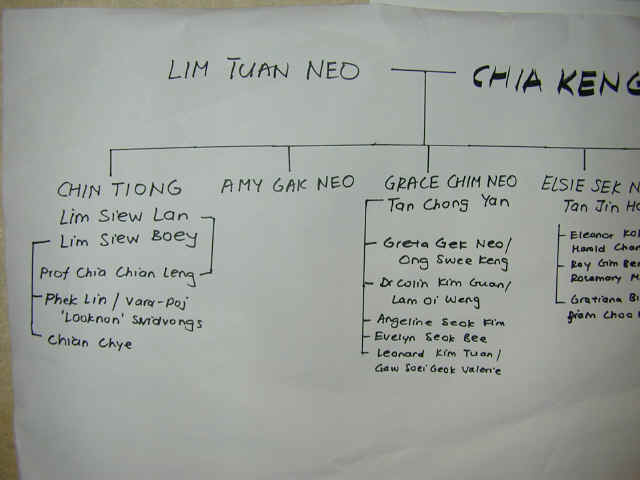 LIM TUAN NEO
CHIA KENG
CHIN TIONG
Lim Siew Lan
Lim Siew Boey
Prof Chia Chian Leng
Phek Lin / Vara-poj
'Looknan' Snidvongs
Chian Chye
AMY GAK NEO
GRACE CHIM NEO
Tan Chong Yan
Greta Gek Neo/
Ong Swee Keng
Dr Colin Kim Guan/
Lam Oi Weng
Angeline Seok Kim
Evelyn Seok Bee
Leonard Kim Tuan/
Gaw Soei Geok Valerie
ELSIE SEK N
Tan Jin Ho
Eleanor Kol
Harold Chan
Ray Gim Ben
Rosemary M
Gratiana Bi
Choo